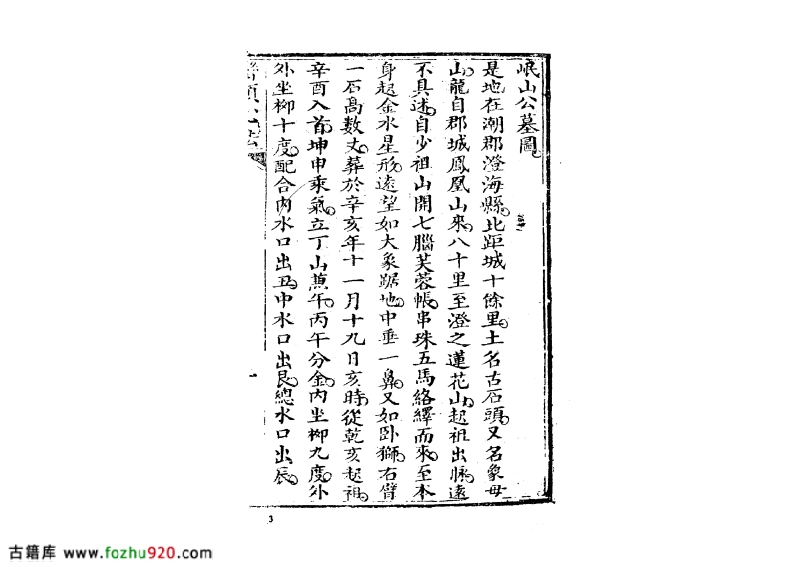 岷山公墓圖
是地在潮郡澄海縣北距城十餘里土名古石頭又名象母
山龍自郡城鳳凰山來八十里至澄之蓮花山起祖出脉遠
不具述自少祖山開七腦芙蓉帳串珠五馬絡繹而來至本
身起金水星形遠望如大象踞地中垂一鼻又如卧獅右臂
一石高數丈葬於辛亥年十一月十九日亥時從乾亥起祖
辛酉入首坤申乘氣立丁山蒹午丙午分金內坐柳九度外
外坐柳十度配合內水口出丑中水口出艮總水口出辰
3
古籍库 www.fozhu920.com